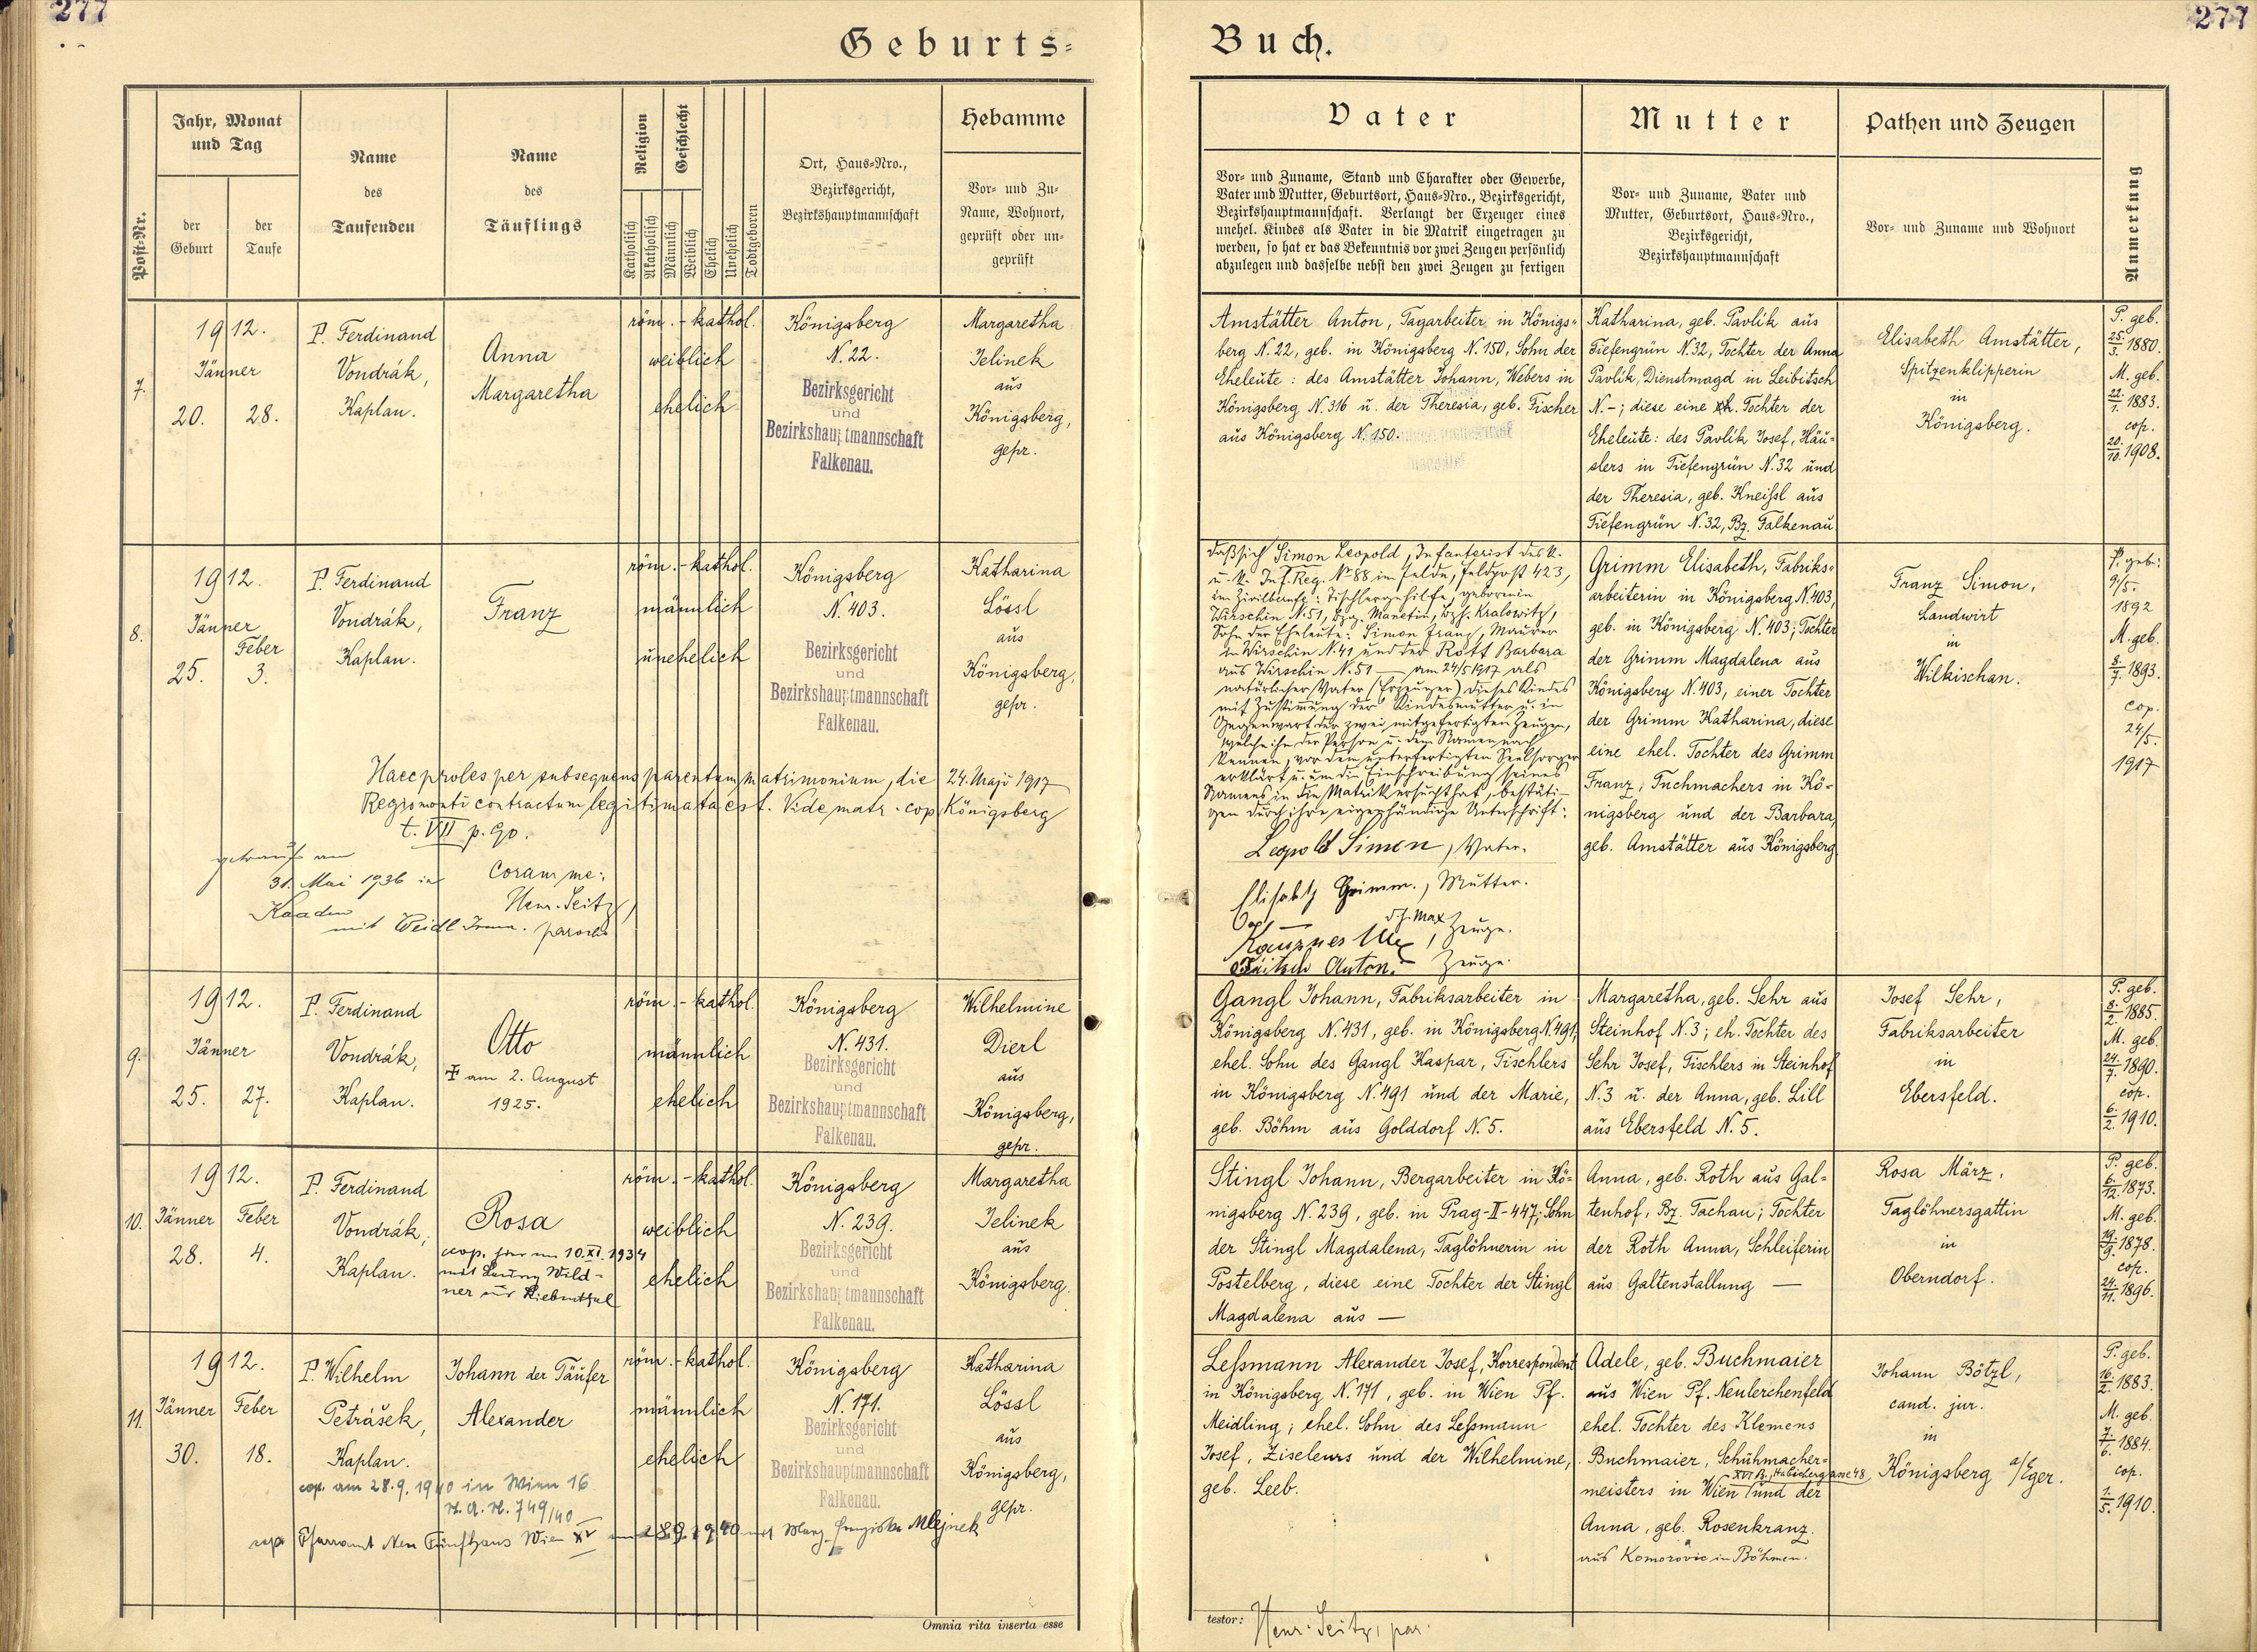 277
277
Geburts-
Buch.
Post-Nr.
Jahr, Monat
und Tag
der
Geburt
der
Taufe
Name
des
Taufenden
Name
des
Täuflings
Religion
Geschlecht
Katholisch
Akatholisch
Männlich
Weiblich
Ehelich
Unehelich
Todtgeboren
Ort, Haus-Nro.,
Bezirksgericht,
Bezirkshauptmannschaft
Hebamme
Vor- und Zu-
Name, Wohnort,
geprüft oder un-
geprüft
Vater
Vor- und Zuname, Stand und Charakter oder Gewerbe,
Vater und Mutter, Geburtsort, Haus-Nro., Bezirksgericht,
Bezirkshauptmannschaft. Verlangt der Erzeuger eines
unehel. Kindes als Vater in die Matrik eingetragen zu
werden, so hat er das Bekenntnis vor zwei Zeugen persönlich
abzulegen und dasselbe nebst den zwei Zeugen zu fertigen
Mutter
Vor- und Zuname, Vater und
Mutter, Geburtsort, Haus-Nro.,
Bezirksgericht,
Bezirkshauptmannschaft
Pathen und Zeugen
Vor- und Zuname und Wohnort
Anmerkung
7.
1912.
Jänner
20. 28.
P. Ferdinand
Vondrák,
Kaplan.
Anna
Margaretha
röm.-kathol.
weiblich
ehelich
Königsberg
N. 22.
Bezirksgericht
und
Bezirkshauptmannschaft
Falkenau.
Margaretha
Jelinek
aus
Königsberg,
gepr.
Amstätter Anton, Tagarbeiter in Königs-
berg N. 22, geb. in Königsberg N. 150, Sohn der
Eheleute: des Amstätter Johann, Webers in
Königsberg N. 316 u. der Theresia, geb. Fischer
aus Königsberg N. 150.
Katharina, geb. Pavlik aus
Tiefengrün N. 32, Tochter der Anna
Pavlik, Dienstmagd in Leibitsch
N. -; diese eine eh. Tochter der
Eheleute: des Pavlik Josef, Häu-
slers in Tiefengrün N. 32 und
der Theresia, geb. Kneißl aus
Tiefengrün N. 32, Bz. Falkenau
Elisabeth Amstätter,
Spitzenklipperin
in
Königsberg.
P. geb.
25./3. 1880.
M. geb.
22./1. 1883.
cop.
20./10. 1908.
8.
1912.
Jänner
Feber
25. 3.
P. Ferdinand
Vondrák,
Kaplan.
Franz
röm.-kathol.
männlich
unehelich
Königsberg
N. 403.
Bezirksgericht
und
Bezirkshauptmannschaft
Falkenau.
Katharina
Lössl
aus
Königsberg,
gepr.
Haec proles per subsequens parentum matrimonium, die 24. Maji 1917
Regiomonti contractum legitimata est. Vide matr. cop. Königsberg
t. VII p. 90.
getraut am
31. Mai 1936 in
Kaaden
mit Weidl
Coram me:
Henr. Seitz,
parochus
daß sich Simon Leopold, Infanterist des k.
u. k. Inf. Reg. Nº 88 im Felde, Feldpost 423,
im Zivilberufe: Tischlergehilfe, geboren in
Wirschin N. 51, Bzg. Manetin, Bzh. Kralowitz,
Sohn der Eheleute: Simon Franz, Maurer
in Wirschin N. 41 und der Rott Barbara
aus Wirschin N. 51 — am 24/5 1917 als
natürlicher Vater (Erzeuger) dieses Kindes
mit Zustimmung der Kindesmutter u. in
Gegenwart der zwei mitgefertigten Zeugen,
welche ihn der Person u. dem Namen nach
kennen, vor dem unterfertigten Seelsorger
erklärt u. um die Einschreibung seines
Namens in die Matrik ersucht hat, bestäti-
gen durch ihre eigenhändige Unterschrift:
Leopold Simon, Vater.
Elisabeth Grimm., Mutter.
d. J. Max
Zeuge.
Anton. Zeuge.
Grimm Elisabeth, Fabriks-
arbeiterin in Königsberg N. 403,
geb. in Königsberg N. 403; Tochter
der Grimm Magdalena aus
Königsberg N. 403, einer Tochter
der Grimm Katharina, diese
eine ehel. Tochter des Grimm
Franz, Tuchmachers in Kö-
nigsberg und der Barbara,
geb. Amstätter aus Königsberg
Franz Simon,
Landwirt
in
Wilkischan.
P. geb:
9/5.
1892
M. geb.
8./7. 1893.
cop.
24/5.
1917
9.
1912.
Jänner
25. 27.
P. Ferdinand
Vondrák,
Kaplan.
Otto
✝ am 2. August
1925.
röm.-kathol.
männlich
ehelich
Königsberg
N. 431.
Bezirksgericht
und
Bezirkshauptmannschaft
Falkenau.
Wilhelmine
Dierl
aus
Königsberg,
gepr.
Gangl Johann, Fabriksarbeiter in
Königsberg N. 431, geb. in Königsberg N. 491,
ehel. Sohn des Gangl Kaspar, Tischlers
in Königsberg N. 491 und der Marie,
geb. Böhm aus Golddorf N. 5.
Margaretha, geb. Sehr aus
Steinhof N. 3; eh. Tochter des
Sehr Josef, Tischlers in Steinhof
N. 3 u. der Anna, geb. Lill
aus Ebersfeld N. 5.
Josef Sehr,
Fabriksarbeiter
in
Ebersfeld.
P. geb.
8./2. 1885.
M. geb.
24./7. 1890.
cop.
6./2. 1910.
10.
1912.
Jänner Feber
28. 4.
P. Ferdinand
Vondrák,
Kaplan.
Rosa
cop. 10. XI. 1934
mit Wild-
ner aus
röm.-kathol.
weiblich
ehelich
Königsberg
N. 239.
Bezirksgericht
und
Bezirkshauptmannschaft
Falkenau.
Margaretha
Jelinek
aus
Königsberg.
Stingl Johann, Bergarbeiter in Kö-
nigsberg N. 239, geb. in Prag-II-447; Sohn
der Stingl Magdalena, Taglöhnerin in
Postelberg, diese eine Tochter der Stingl
Magdalena aus —
Anna, geb. Roth aus Gal-
tenhof, Bz. Tachau; Tochter
der Roth Anna, Schleiferin
aus Galtenstallung —
Rosa März,
Taglöhnersgattin
in
Oberndorf.
P. geb.
6./12. 1873.
M. geb.
19./9. 1878.
cop.
24./11. 1896.
11.
1912.
Jänner Feber
30. 18.
P. Wilhelm
Petrášek,
Kaplan.
Johann der Täufer
Alexander
röm.-kathol.
männlich
ehelich
Königsberg
N. 171.
Bezirksgericht
und
Bezirkshauptmannschaft
Falkenau.
Katharina
Lössl
aus
Königsberg,
gepr.
cop. am 28.9.1940 in Wien 16
749/40
cop Pfarramt Neu Fünfhaus Wien XV am 28.9.1940 mit Marg. Franziska Mlejnek
Leßmann Alexander Josef, Korrespondent
in Königsberg N. 171, geb. in Wien Pf.
Meidling; ehel. Sohn des Leßmann
Josef, Ziseleurs und der Wilhelmine,
geb. Leeb.
Adele, geb. Buchmaier
aus Wien Pf. Neulerchenfeld
ehel. Tochter des Klemens
Buchmaier, Schuhmacher-
XVI B., Habichergasse 48
meisters in Wien / und der
Anna, geb. Rosenkranz.
aus Komorovic in Böhmen.
Johann Bötzl,
cand. jur.
in
Königsberg a/Eger.
P. geb.
16./2. 1883.
M. geb.
7./6. 1884.
cop.
1./5. 1910.
Omnia rita inserta esse
testor: Henr. Seitz, par.